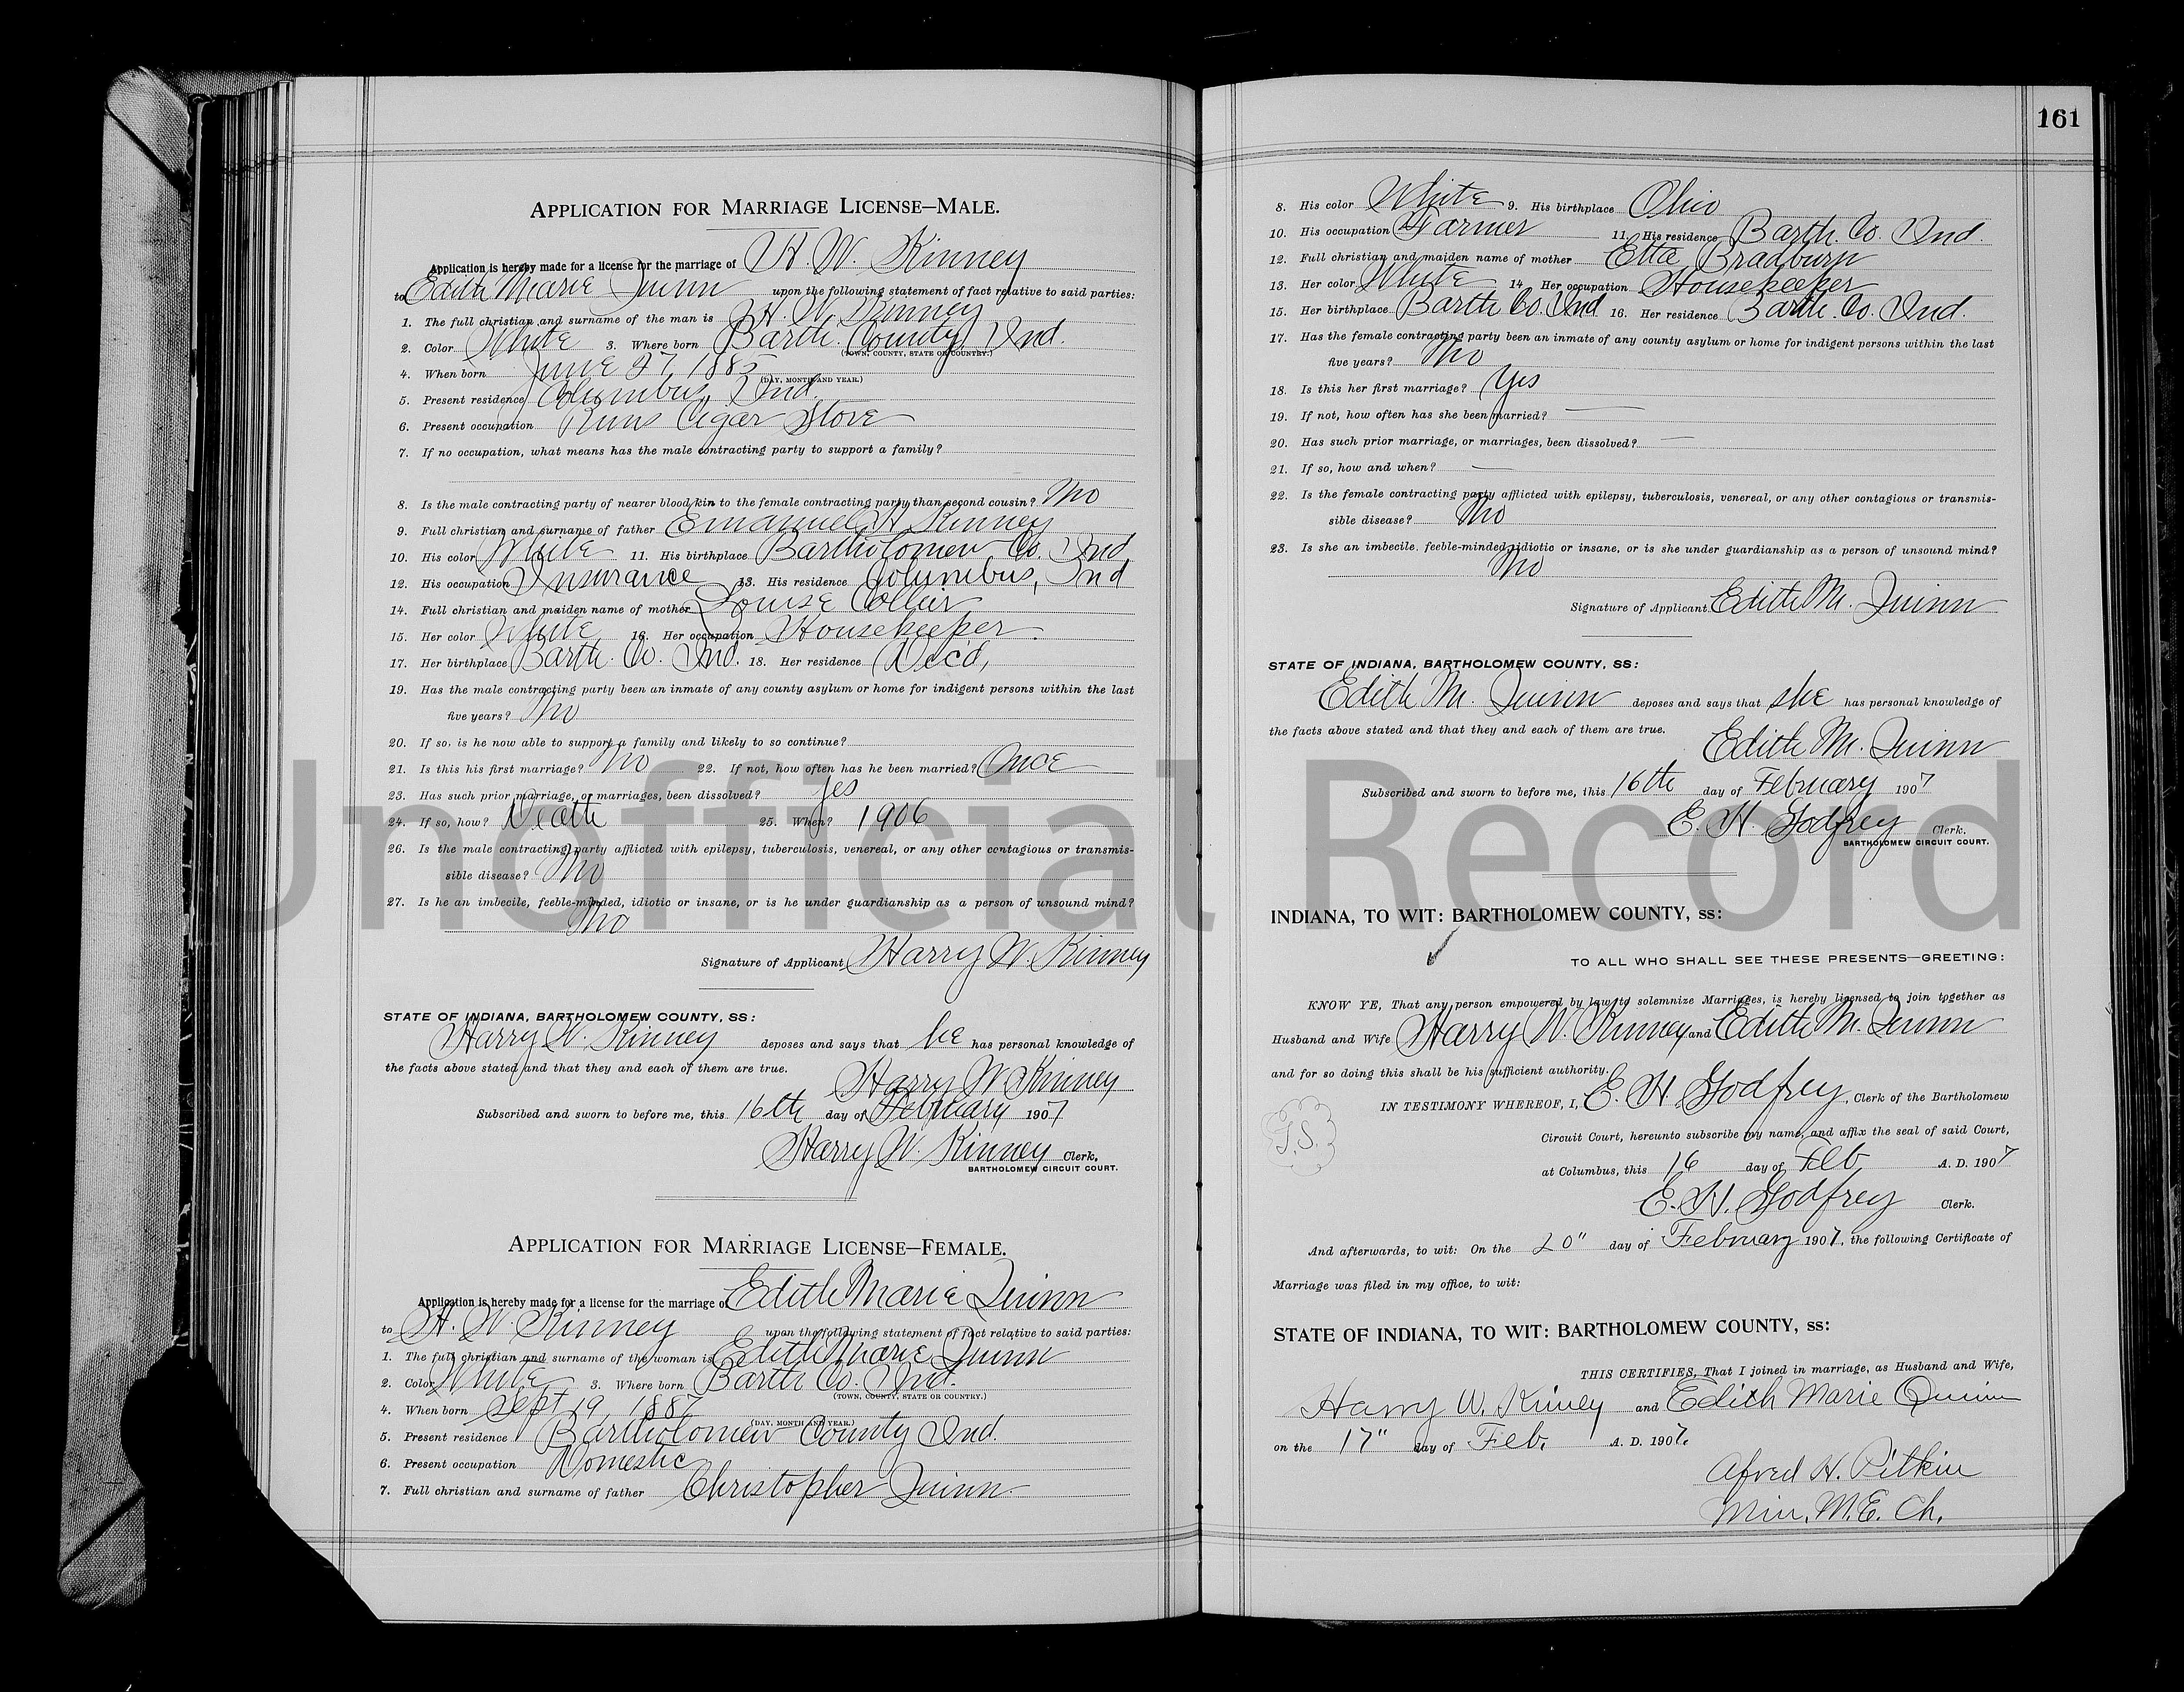 161
APPLICATION FOR MARRIAGE LICENSE—MALE.
Application is hereby made for a license for the marriage of H. W. Kinney
to Edith Marie Quinn upon the following statement of fact relative to said parties:
1. The full christian and surname of the man is H. W. Kinney
2. Color White 3. Where born Barth. County, Ind.
(TOWN, COUNTY, STATE OR COUNTRY.)
4. When born June 27, 1885
(DAY, MONTH AND YEAR.)
5. Present residence Columbus, Ind.
6. Present occupation Runs Cigar Store
7. If no occupation, what means has the male contracting party to support a family?
8. Is the male contracting party of nearer blood kin to the female contracting party than second cousin? No
9. Full christian and surname of father Emanuel H Kinney
10. His color White 11. His birthplace Bartholomew Co. Ind
12. His occupation Insurance 13. His residence Columbus, Ind
14. Full christian and maiden name of mother Louise Collier
15. Her color White 16. Her occupation Housekeeper.
17. Her birthplace Barth. Co. Ind. 18. Her residence Dec'd,
19. Has the male contracting party been an inmate of any county asylum or home for indigent persons within the last
five years? No
20. If so, is he now able to support a family and likely to so continue?
21. Is this his first marriage? No 22. If not, how often has he been married? Once
23. Has such prior marriage, or marriages, been dissolved? Yes
24. If so, how? Death 25. When? 1906
26. Is the male contracting party afflicted with epilepsy, tuberculosis, venereal, or any other contagious or transmis-
sible disease? No
27. Is he an imbecile, feeble-minded, idiotic or insane, or is he under guardianship as a person of unsound mind?
No
Signature of Applicant Harry W. Kinney
STATE OF INDIANA, BARTHOLOMEW COUNTY, SS:
Harry W. Kinney deposes and says that he has personal knowledge of
the facts above stated and that they and each of them are true.
Harry W. Kinney
Subscribed and sworn to before me, this 16th day of February 1907
Harry W. Kinney Clerk,
BARTHOLOMEW CIRCUIT COURT.
APPLICATION FOR MARRIAGE LICENSE—FEMALE.
Application is hereby made for a license for the marriage of Edith Marie Quinn
to H. W. Kinney upon the following statement of fact relative to said parties:
1. The full christian and surname of the woman is Edith Marie Quinn
2. Color White 3. Where born Barth Co. Ind.
(TOWN, COUNTY, STATE OR COUNTRY.)
4. When born Sept 19, 1887
(DAY, MONTH AND YEAR.)
5. Present residence Bartholomew County Ind.
6. Present occupation Domestic
7. Full christian and surname of father Christopher Quinn
8. His color White 9. His birthplace Ohio
10. His occupation Farmer 11. His residence Barth. Co. Ind.
12. Full christian and maiden name of mother Etta Bradburn
13. Her color White 14. Her occupation Housekeeper
15. Her birthplace Barth Co. Ind 16. Her residence Barth. Co. Ind.
17. Has the female contracting party been an inmate of any county asylum or home for indigent persons within the last
five years? No
18. Is this her first marriage? Yes
19. If not, how often has she been married? —
20. Has such prior marriage, or marriages, been dissolved? —
21. If so, how and when? —
22. Is the female contracting party afflicted with epilepsy, tuberculosis, venereal, or any other contagious or transmis-
sible disease? No
23. Is she an imbecile, feeble-minded, idiotic or insane, or is she under guardianship as a person of unsound mind?
No
Signature of Applicant Edith M. Quinn
STATE OF INDIANA, BARTHOLOMEW COUNTY, SS:
Edith M. Quinn deposes and says that she has personal knowledge of
the facts above stated and that they and each of them are true.
Edith M. Quinn
Subscribed and sworn to before me, this 16th day of February 1907
E. H. Godfrey Clerk.
BARTHOLOMEW CIRCUIT COURT.
INDIANA, TO WIT: BARTHOLOMEW COUNTY, SS:
TO ALL WHO SHALL SEE THESE PRESENTS—GREETING:
KNOW YE, That any person empowered by law to solemnize Marriages, is hereby licensed to join together as
Husband and Wife Harry W. Kinney and Edith M. Quinn
and for so doing this shall be his sufficient authority.
IN TESTIMONY WHEREOF, I, E. H. Godfrey, Clerk of the Bartholomew
Circuit Court, hereunto subscribe my name, and affix the seal of said Court,
at Columbus, this 16 day of Feb A. D. 1907
E. H. Godfrey Clerk.
And afterwards, to wit: On the 20" day of February 1907, the following Certificate of
Marriage was filed in my office, to wit:
STATE OF INDIANA, TO WIT: BARTHOLOMEW COUNTY, SS:
THIS CERTIFIES, That I joined in marriage, as Husband and Wife,
Harry W. Kinney and Edith Marie Quinn
on the 17" day of Feb. A. D. 1907.
Alfred H. Pitkin
Min. M. E. Ch.
Unofficial Record